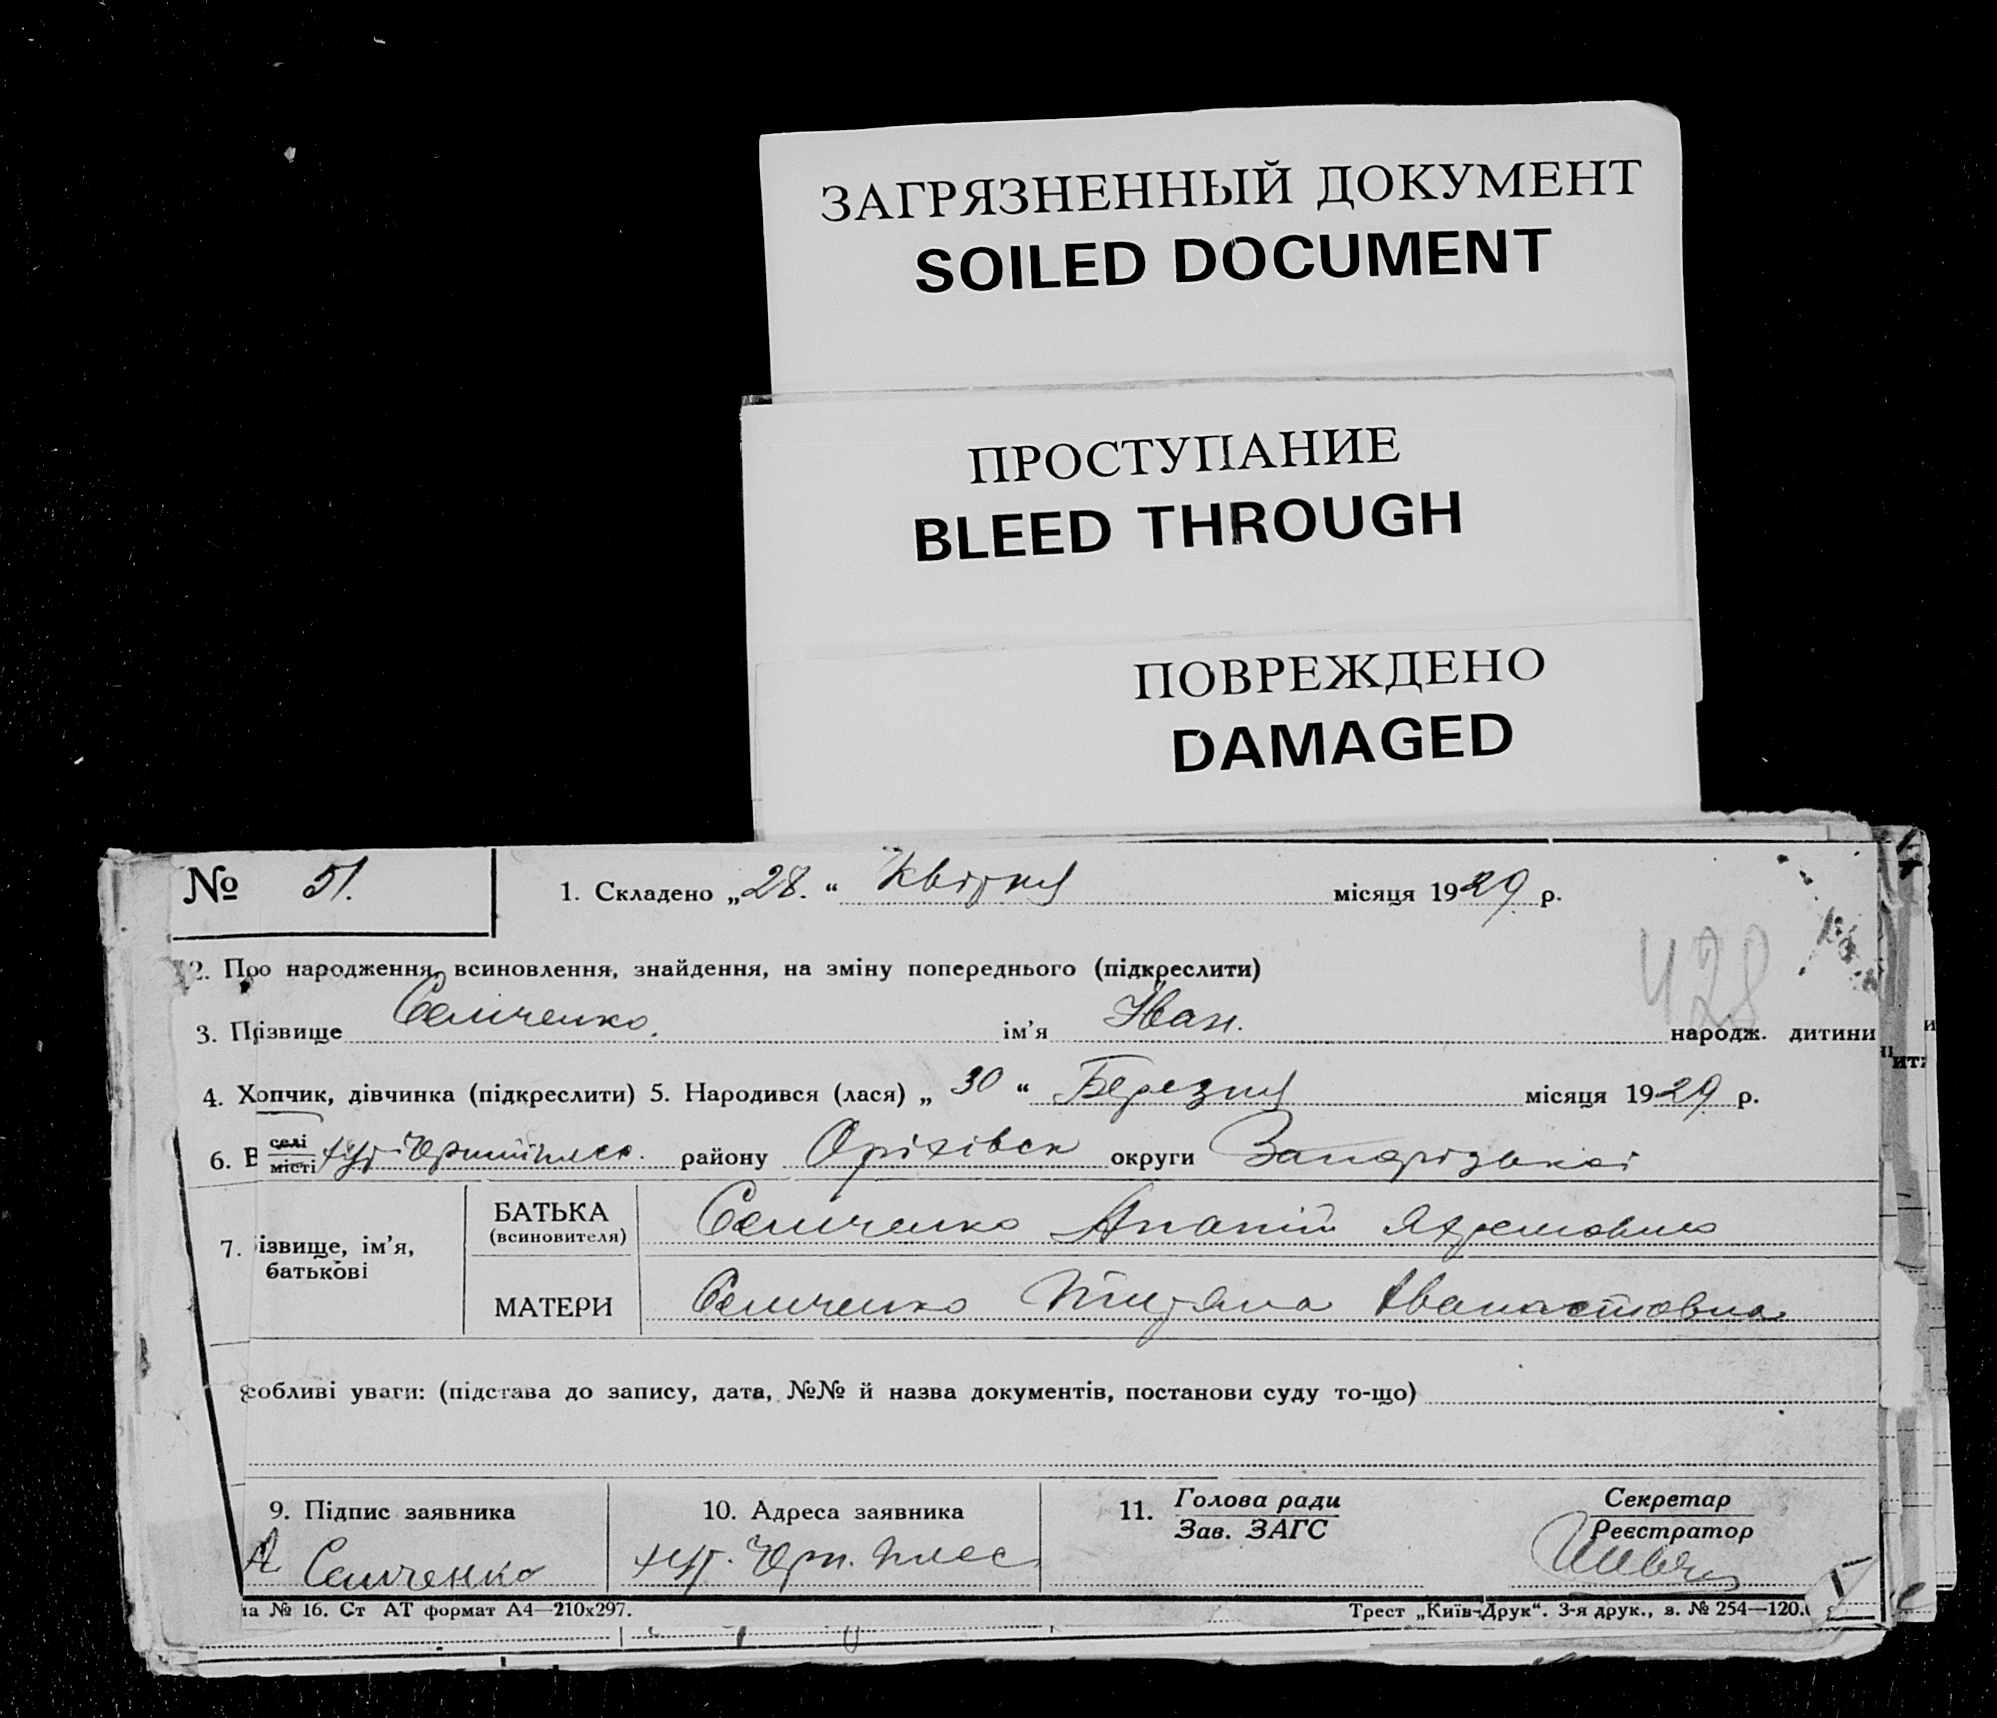 ЗАГРЯЗНЕННЫЙ ДОКУМЕНТ
SOILED DOCUMENT
ПРОСТУПАНИЕ
BLEED THROUGH
ПОВРЕЖДЕНО
DAMAGED
№ 51. 1. Складено „28. “ Квітня місяця 1929 р.
2. Про народження, всиновлення, знайдення, на зміну попереднього (підкреслити)
428
3. Прізвище Семченко. ім’я Іван. народж. дитини
4. Хопчик, дівчинка (підкреслити) 5. Народився (лася) „ 30 “ Березня місяця 1929 р.
6. В селі місті хут району Оріхівск округи Запорізької
7. ізвище, ім’я, батькові
БАТЬКА (всиновителя) Семченко
МАТЕРИ Семченко
собливі уваги: (підстава до запису, дата, №№ й назва документів, постанови суду то-що)
9. Підпис заявника 10. Адреса заявника 11. Голова ради Зав. ЗАГС Секретар Реєстратор
А Семченко хут. Чрн. Плес
ма № 16. Ст АТ формат А4—210х297. Трест „Київ-Друк“. 3-я друк., з. № 254—120.